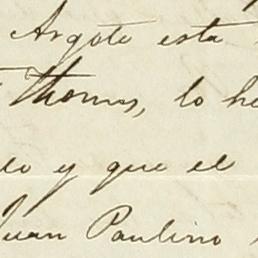 Argote esta
Thomas, lo he
y que el
Juan Paulino